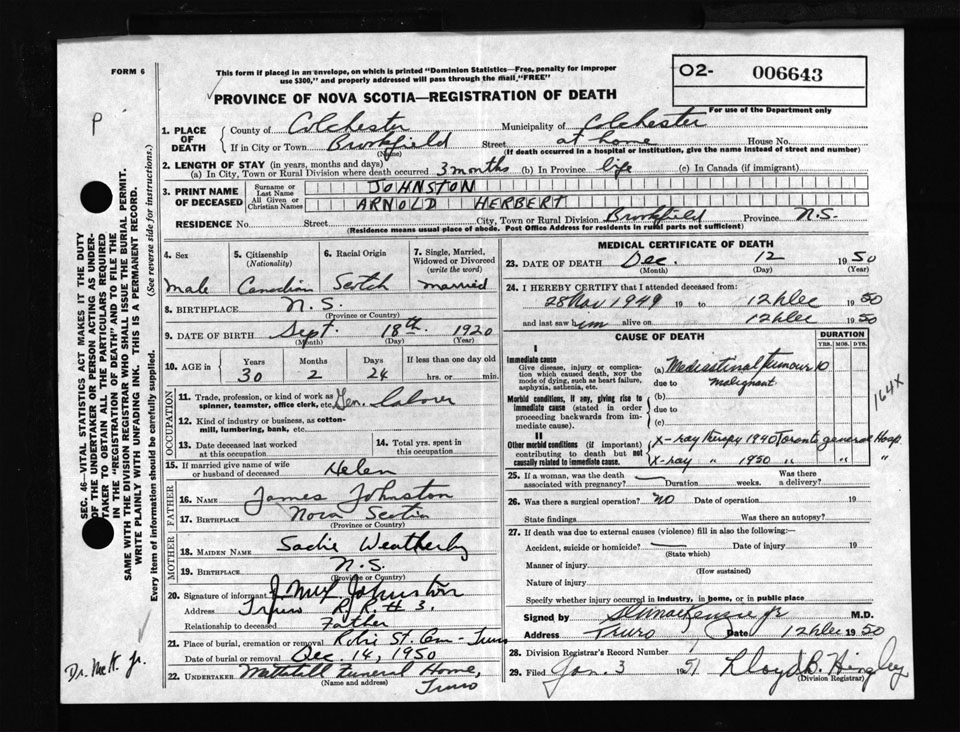 FORM 6
This form if placed in an envelope, on which is printed "Dominion Statistics—Free, penalty for improper
use $300," and properly addressed will pass through the mail, "FREE"
PROVINCE OF NOVA SCOTIA—REGISTRATION OF DEATH
O2- 006643
For use of the Department only
P
SEC. 46—VITAL STATISTICS ACT MAKES IT THE DUTY
OF THE UNDERTAKER OR PERSON ACTING AS UNDER-
TAKER TO OBTAIN ALL THE PARTICULARS REQUIRED
IN THE "REGISTRATION OF DEATH" AND TO FILE THE
SAME WITH THE DIVISION REGISTRAR WHO SHALL ISSUE THE BURIAL PERMIT.
WRITE PLAINLY WITH UNFADING INK. THIS IS A PERMANENT RECORD.
Every item of information should be carefully supplied. (See reverse side for instructions.)
Dr. McK. Jr.
1. PLACE OF DEATH
County of Colchester Municipality of Colchester
If in City or Town Brookfield Street at home House No.
(Name) (If death occurred in a hospital or institution, give the name instead of street and number)
2. LENGTH OF STAY (in years, months and days)
(a) In City, Town or Rural Division where death occurred 3 months (b) In Province life (c) In Canada (if immigrant)
3. PRINT NAME OF DECEASED
Surname or Last Name JOHNSTON
All Given or Christian Names ARNOLD HERBERT
RESIDENCE No. Street City, Town or Rural Division Brookfield Province N.S.
(Residence means usual place of abode. Post Office Address for residents in rural parts not sufficient)
4. Sex 5. Citizenship (Nationality) 6. Racial Origin 7. Single, Married, Widowed or Divorced (write the word)
Male Canadian Scotch Married
8. BIRTHPLACE N.S.
(Province or Country)
9. DATE OF BIRTH Sept. 18th. 1920
(Month) (Day) (Year)
10. AGE in Years Months Days If less than one day old
30 2 24 hrs. or min.
OCCUPATION
11. Trade, profession, or kind of work as
spinner, teamster, office clerk, etc. Gen. Labourer
12. Kind of industry or business, as cotton-
mill, lumbering, bank, etc.
13. Date deceased last worked at this occupation 14. Total yrs. spent in this occupation
15. If married give name of wife or husband of deceased Helen
FATHER
16. NAME James Johnston
17. BIRTHPLACE Nova Scotia
(Province or Country)
MOTHER
18. MAIDEN NAME Sadie Weatherby
19. BIRTHPLACE N.S.
(Province or Country)
20. Signature of informant Johnston
Address Truro R.R.# 3.
Relationship to deceased Father
21. Place of burial, cremation or removal Robie St. Cem - Truro
Date of burial or removal Dec. 14, 1950
22. UNDERTAKER Mattatall Funeral Home,
(Name and address) Truro
MEDICAL CERTIFICATE OF DEATH
23. DATE OF DEATH Dec. 12 1950
(Month) (Day) (Year)
24. I HEREBY CERTIFY that I attended deceased from:
28 Nov 1949 19 to 12 Dec 1950
and last saw him alive on 12 Dec 1950
CAUSE OF DEATH DURATION
YRS. MOS. DYS.
I
Immediate cause
Give disease, injury or complica-
tion which caused death, NOT the
mode of dying, such as heart failure,
asphyxia, asthenia, etc.
(a) Mediastinal tumour 10
due to Malignant
Morbid conditions, if any, giving rise to
immediate cause (stated in order
proceeding backwards from im-
mediate cause).
(b)
due to
(c)
164X
II
Other morbid conditions (if important)
contributing to death but not
causally related to immediate cause.
X-ray therapy 1940 Toronto general Hosp.
X-ray " 1950 " " "
25. If a woman, was the death associated with pregnancy? Duration weeks. Was there a delivery?
26. Was there a surgical operation? no Date of operation 19
State findings Was there an autopsy?
27. If death was due to external causes (violence) fill in also the following:
Accident, suicide or homicide? Date of injury 19
(State which)
Manner of injury
(How sustained)
Nature of injury
Specify whether injury occurred in industry, in home, or in public place
Signed by MacKenzie Jr M.D.
Address Truro Date 12 Dec 1950
28. Division Registrar's Record Number
29. Filed Jan. 3 1951 Lloyd B. Hingley
(Division Registrar)